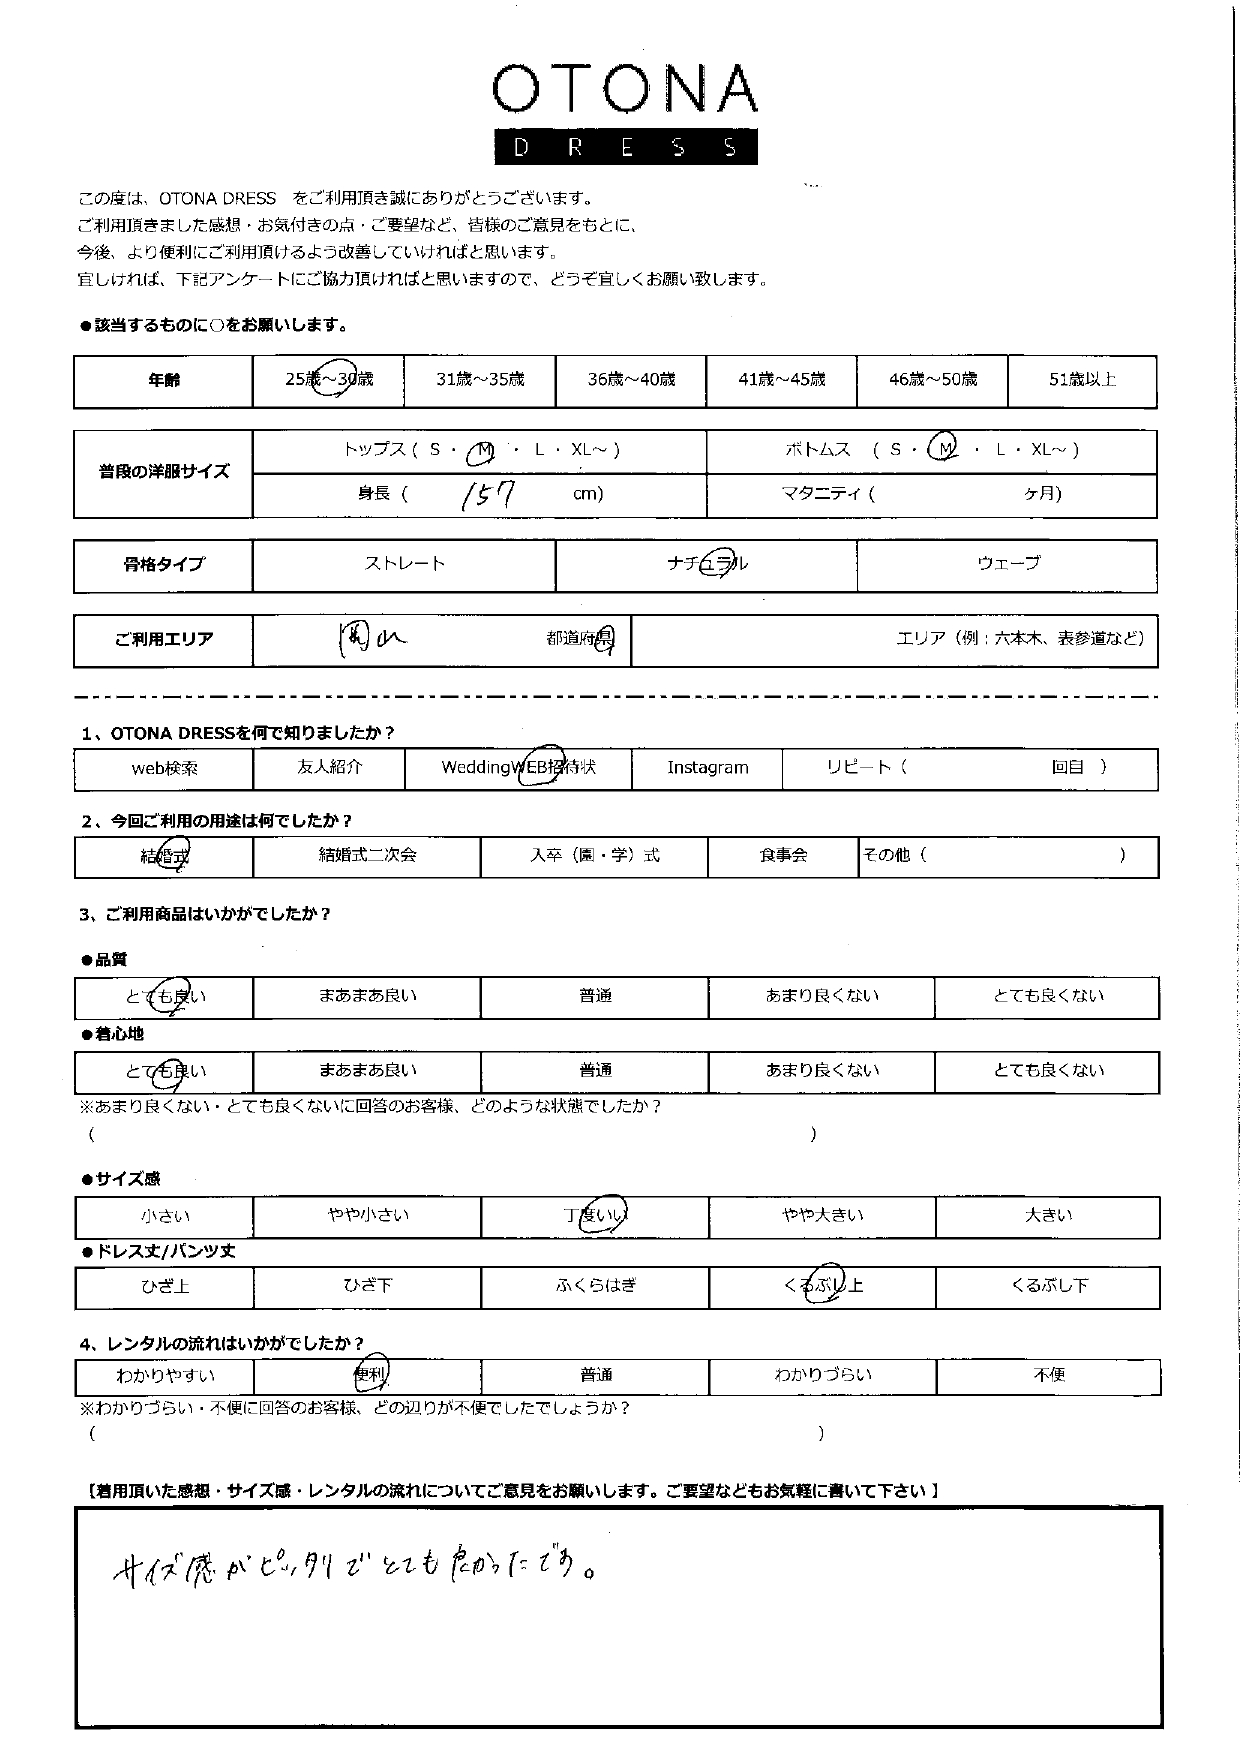 OTONA
DRESS
この度は、OTONA DRESS をご利用頂き誠にありがとうございます。
ご利用頂きました感想・お気付きの点・ご要望など、皆様のご意見をもとに、
今後、より便利にご利用頂けるよう改善していければと思います。
宜しければ、下記アンケートにご協力頂ければと思いますので、どうぞ宜しくお願い致します。
●該当するものに○をお願いします。
年齢 25歳～30歳 31歳～35歳 36歳～40歳 41歳～45歳 46歳～50歳 51歳以上
普段の洋服サイズ トップス ( S ・ M ・ L ・ XL～ ) ボトムス ( S ・ M ・ L ・ XL～ )
身長 ( 157 cm) マタニティ ( ケ月)
骨格タイプ ストレート ナチュラル ウェーブ
ご利用エリア 岡山 都道府県 エリア（例：六本木、表参道など）
1、OTONA DRESSを何で知りましたか？
web検索 友人紹介 WeddingWEB招待状 Instagram リピート（ 回目 ）
2、今回ご利用の用途は何でしたか？
結婚式 結婚式二次会 入卒（園・学）式 食事会 その他（ ）
3、ご利用商品はいかがでしたか？
●品質
とても良い まあまあ良い 普通 あまり良くない とても良くない
●着心地
とても良い まあまあ良い 普通 あまり良くない とても良くない
※あまり良くない・とても良くないに回答のお客様、どのような状態でしたか？
（ ）
●サイズ感
小さい やや小さい 丁度いい やや大きい 大きい
●ドレス丈/パンツ丈
ひざ上 ひざ下 ふくらはぎ くるぶし上 くるぶし下
4、レンタルの流れはいかがでしたか？
わかりやすい 便利 普通 わかりづらい 不便
※わかりづらい・不便に回答のお客様、どの辺りが不便でしたでしょうか？
（ ）
【着用頂いた感想・サイズ感・レンタルの流れについてご意見をお願いします。ご要望などもお気軽に書いて下さい】
サイズ感がピッタリでとても良かったです。